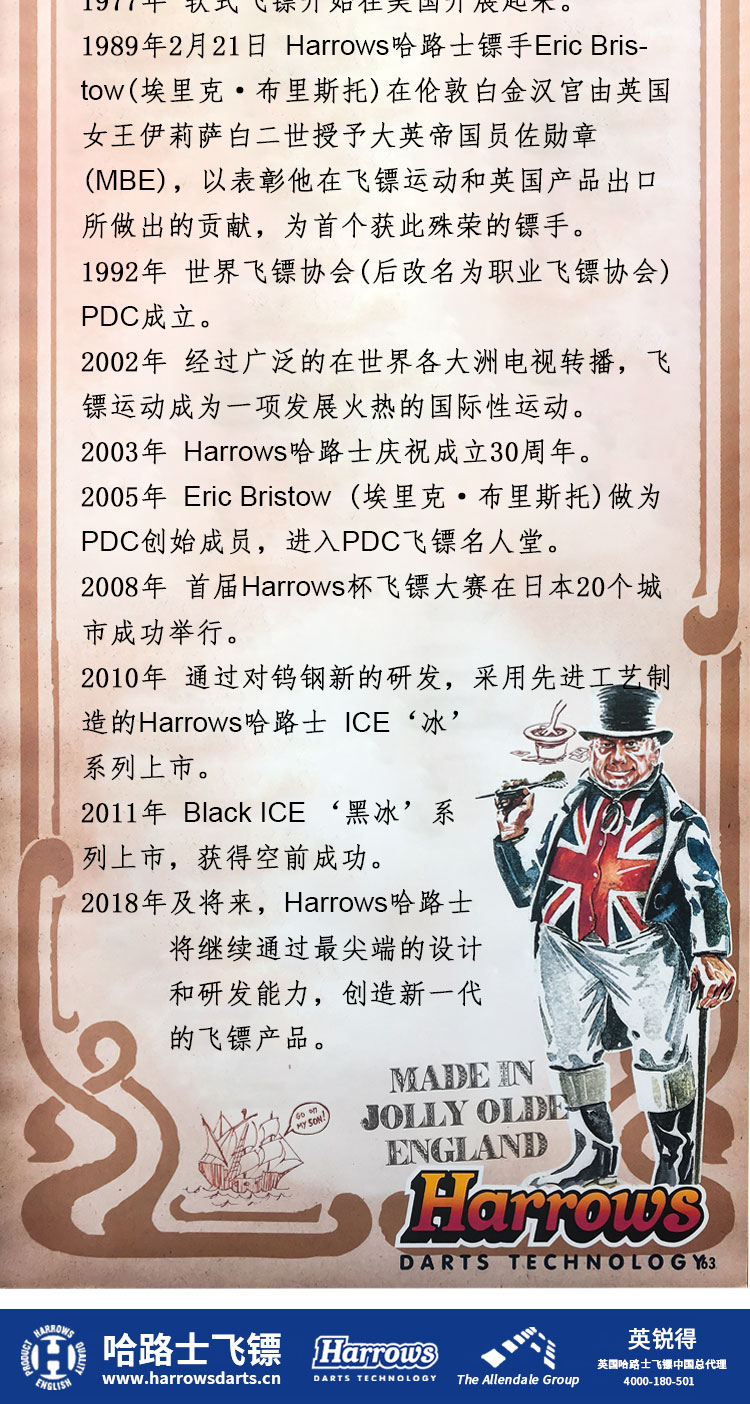 1977年 软式飞镖开始在美国开展起来。
1989年2月21日 Harrows哈路士镖手Eric Bris-
tow(埃里克·布里斯托)在伦敦白金汉宫由英国
女王伊莉萨白二世授予大英帝国员佐勋章
(MBE)，以表彰他在飞镖运动和英国产品出口
所做出的贡献，为首个获此殊荣的镖手。
1992年 世界飞镖协会(后改名为职业飞镖协会)
PDC成立。
2002年 经过广泛的在世界各大洲电视转播，飞
镖运动成为一项发展火热的国际性运动。
2003年 Harrows哈路士庆祝成立30周年。
2005年 Eric Bristow (埃里克·布里斯托)做为
PDC创始成员，进入PDC飞镖名人堂。
2008年 首届Harrows杯飞镖大赛在日本20个城
市成功举行。
2010年 通过对钨钢新的研发，采用先进工艺制
造的Harrows哈路士 ICE‘冰’
系列上市。
2011年 Black ICE ‘黑冰’系
列上市，获得空前成功。
2018年及将来，Harrows哈路士
将继续通过最尖端的设计
和研发能力，创造新一代
的飞镖产品。
GO ON
MY SON!
MADE IN
JOLLY OLDE
ENGLAND
Harrows
DARTS TECHNOLOGY
HARROWS
PRODUCT
QUALITY
ENGLISH
H
哈路士飞镖
www.harrowsdarts.cn
Harrows
DARTS TECHNOLOGY
The Allendale Group
英锐得
英国哈路士飞镖中国总代理
4000-180-501